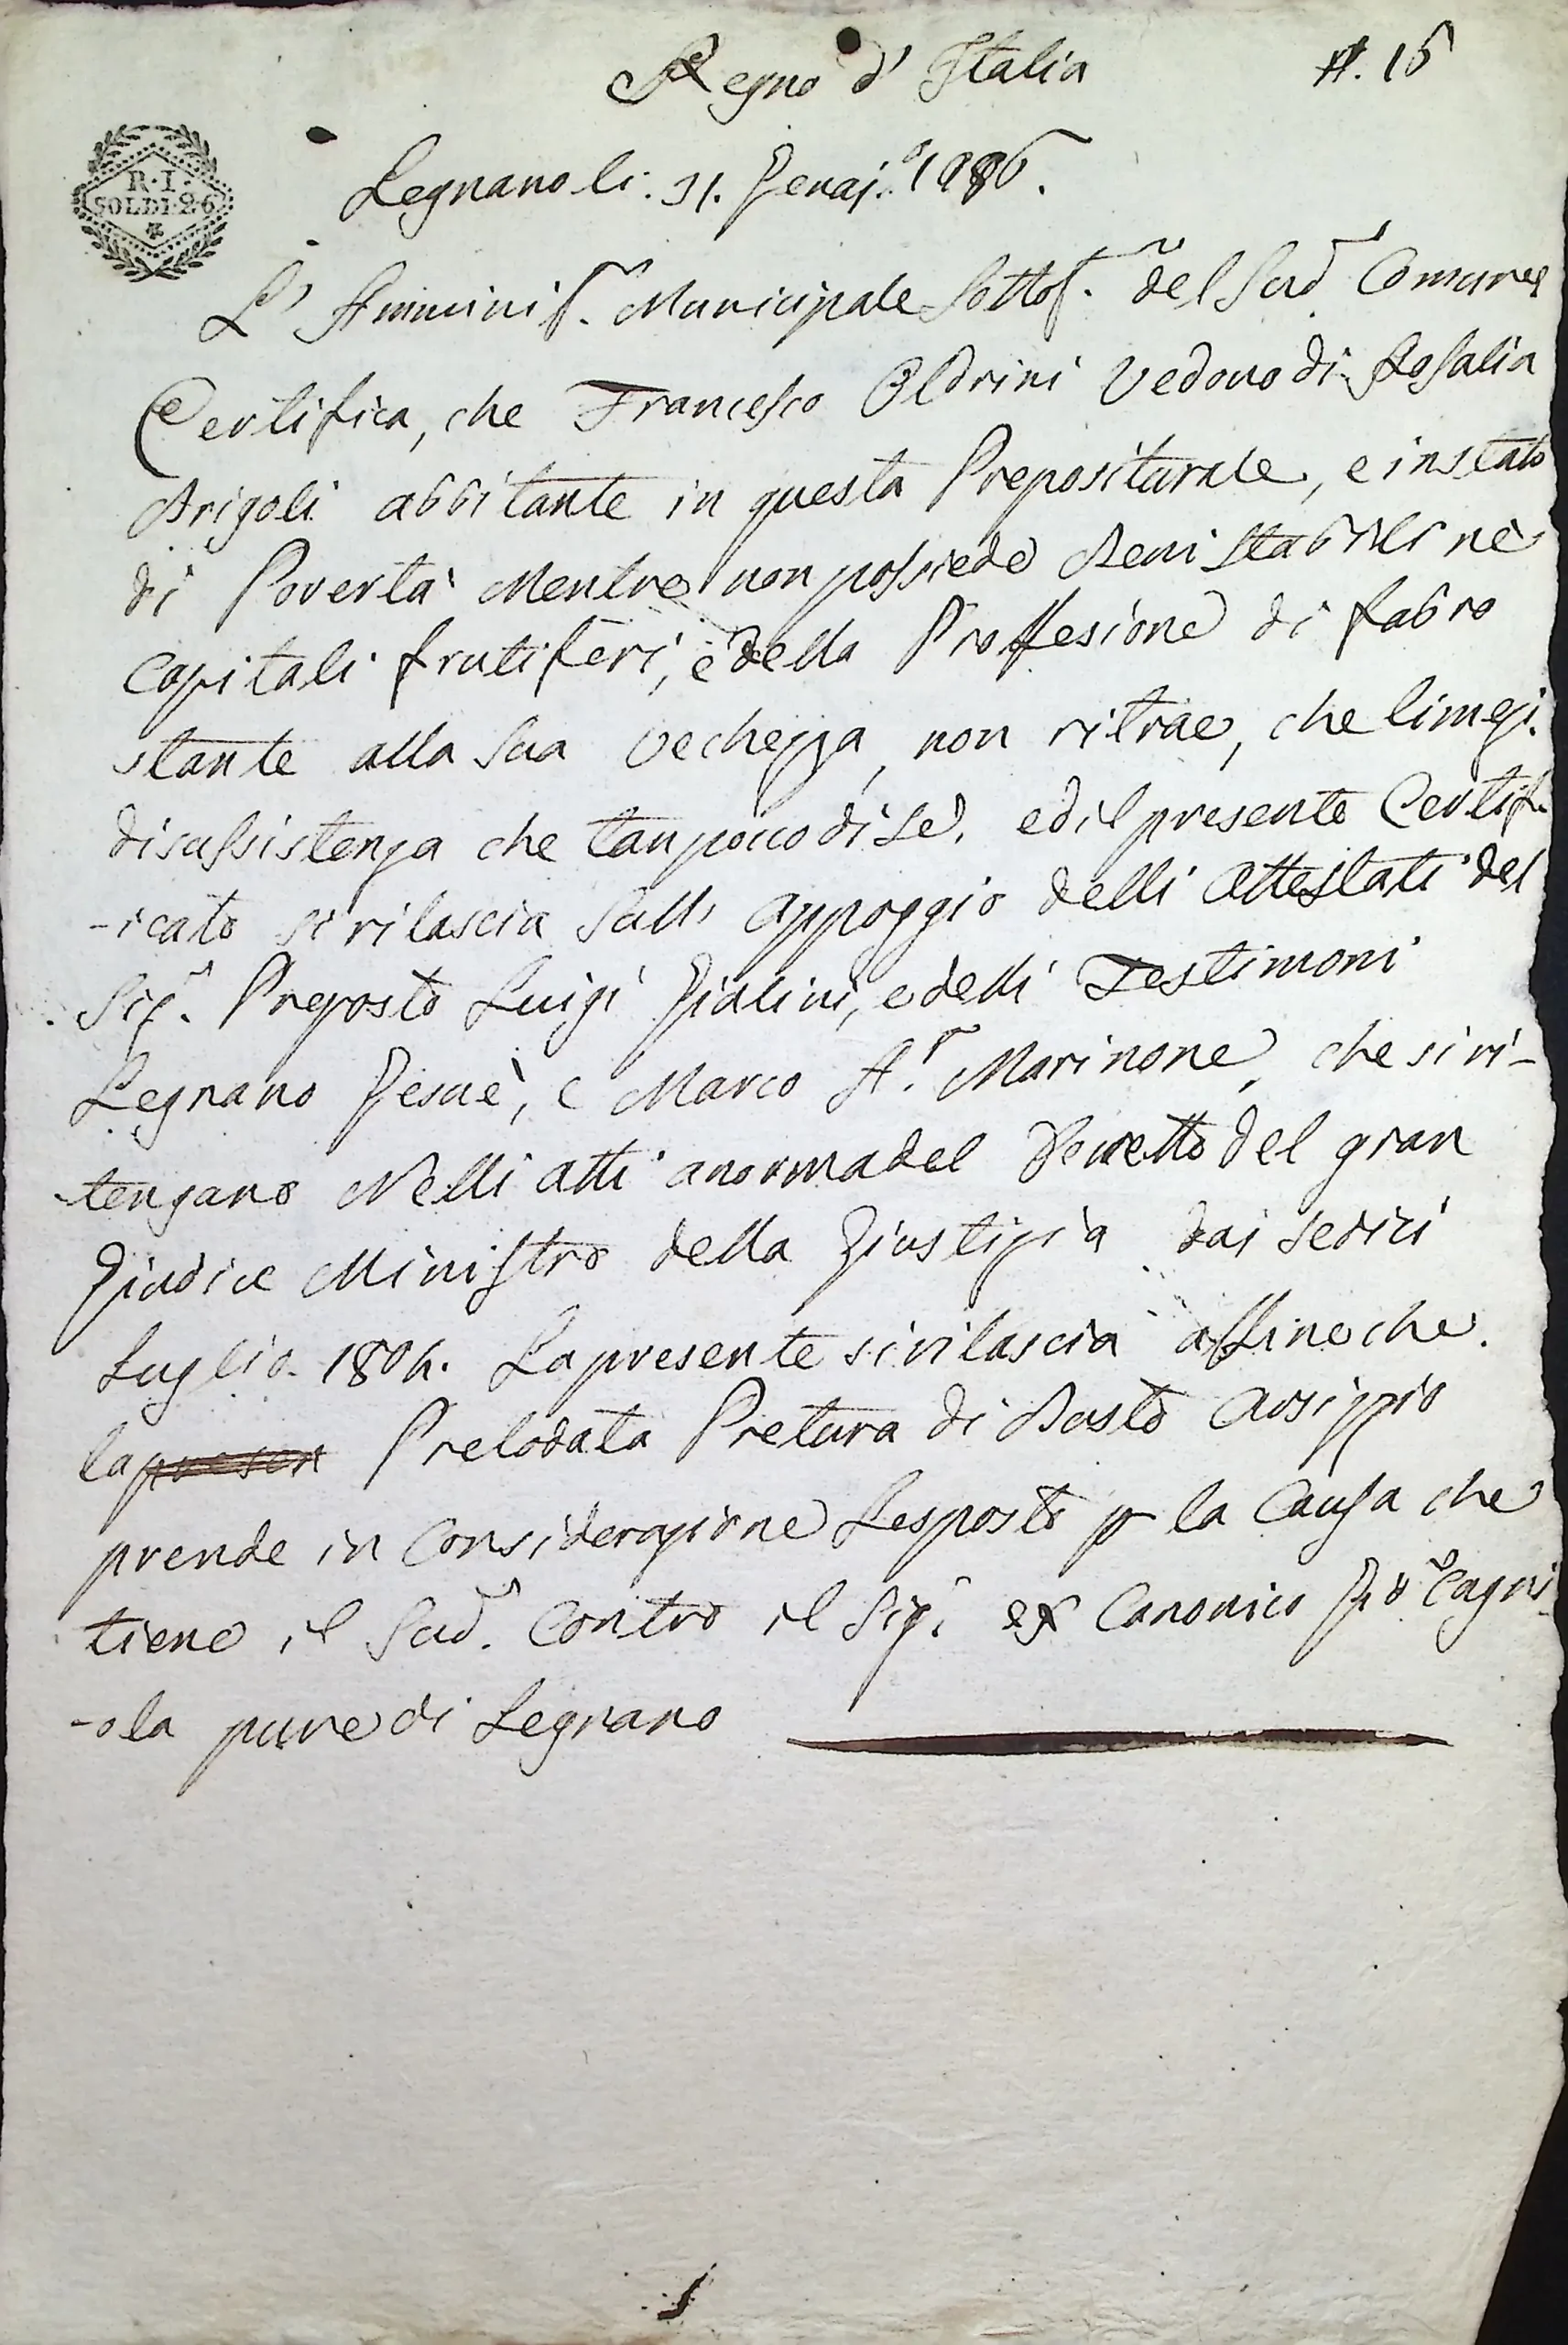 Regno d' Italia
N. 15
R. I.
SOLDI 26
Legnano li. 31. Genaj.o 1806.
L' Amminis. Municipale Sottos. del Sud.o Comune
Certifica, che Francesco Oldrini Vedovo di Rosalia
Arigoli abbitante in questa Prepositurale, e in stato
di Povertà Mentre non possiede Beni stabili nè
Capitali frutiferi, e della Proffesione di fabro
stante alla Sua Vechezza, non ritrae, che li mezi.
di sussistenza che tanpoco di Se, ed il presente Certif-
-icato si rilascia Sull' appoggio delli Attestati del
Sig.r Preposto Luigi Gialini, e delli Testimoni
Legnano Gesuè, e Marco A.t Marinone, che si ri-
tengano Nelli atti a norma del Decretto del gran
Giudice Ministro della Giustizia dai sedici
Luglio 1804. La presente si rilascia affineche
la presen Prelodata Pretura di Busto Arsizzio
prende in Considerazione Lesposto p la Causa che
tiene il Sud.o Contro il Sig. ex Canonico Gio Cagni
-ola pure di Legnano